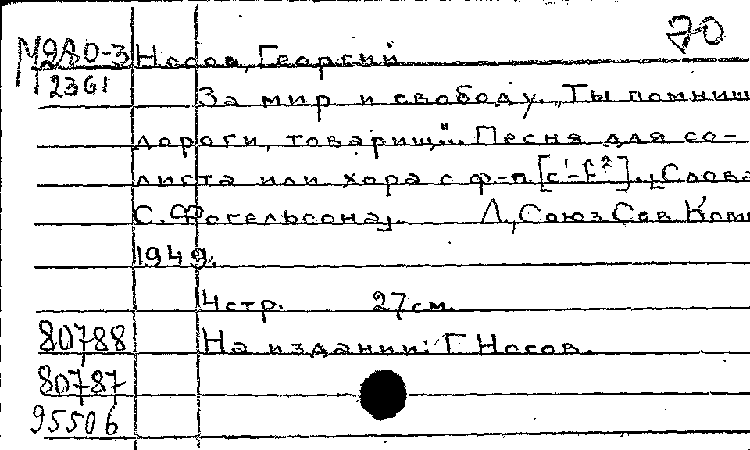 70
М980-3 Носов, Георгий
12361
За мир и свободу. „Ты помниш
дороги, товарищ". Песня для со-
листа или хора с ф-п [c'-f²]. [Слова
С. Фогельсона]. Л., Союз Сов Комп
1949.
4 стр. 27 см.
80788 На издании: Г. Носов.
80787
95506